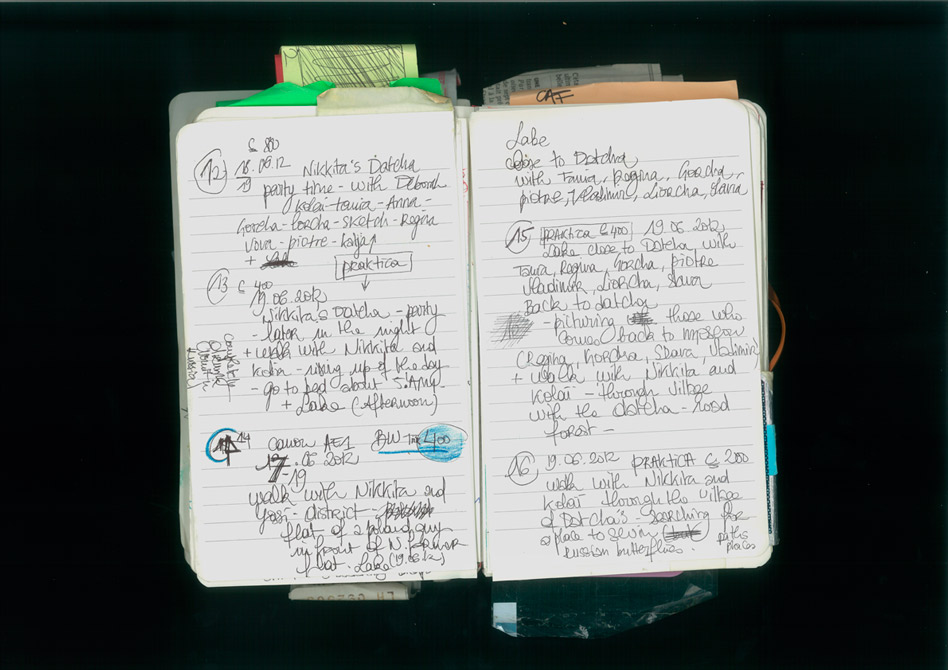 CAF
C 800
12 18.06.12 Nikkita's Datcha
19 party time - with Deborah
Kolai - tania - Anna -
Gorcha - Lorcha - sketch - Regina
Vova - piotre - Kolja
+
praktica
13 C 400
19.06.2012
Nikkita's Datcha - party
- later in the night
+ walk with Nikkita and
Kolai - rising up of the day
- go to bed about 5 AM
+ Lake (Afternoon)
completely
drunk
14 Canon AE1 BW 400
17.06.2012
-19
walk with Nikkita and
district -
flat of a poland guy
in front of N. former
flat. Lake (19.06.12)
Lake
close to Datcha
with Tania, Regina, Gorcha,
piotre, Vladimir, Liorcha, Slava
15 PRAKTICA C 400 19.06.2012
Lake close to Datcha, with
Tania, Regina, Gorcha, piotre
Vladimir, Liorcha, Slava
Back to datcha
- picturing those who
comes back to Moscow
(Regina, Gorcha, Slava Vladimir)
+ walk with Nikkita and
Kolai - through village
with the datcha - road
forest -
16 19.06.2012 PRAKTICA C 200
walk with Nikkita and
Kolai through the village
of Datcha's - searching for
a place to swim
russian butterflies.
places